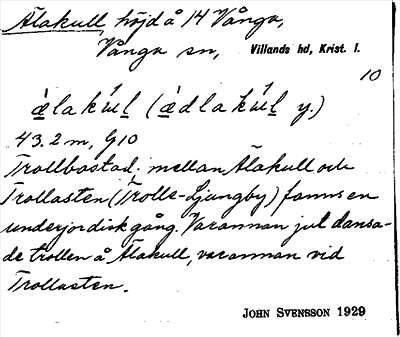 Älakull, höjd å 14 Vånga,
Vånga sn, Villands hd, Krist. l.
10
ælakul (ædlakul y.)
43.2 m, G10
Trollbostad; mellan Älakull och
Trollasten (Trolle-Ljungby) fanns en
underjordisk gång. Varannan jul dansa-
de trollen å Älakull, varannan vid
Trollasten.
JOHN SVENSSON 1929